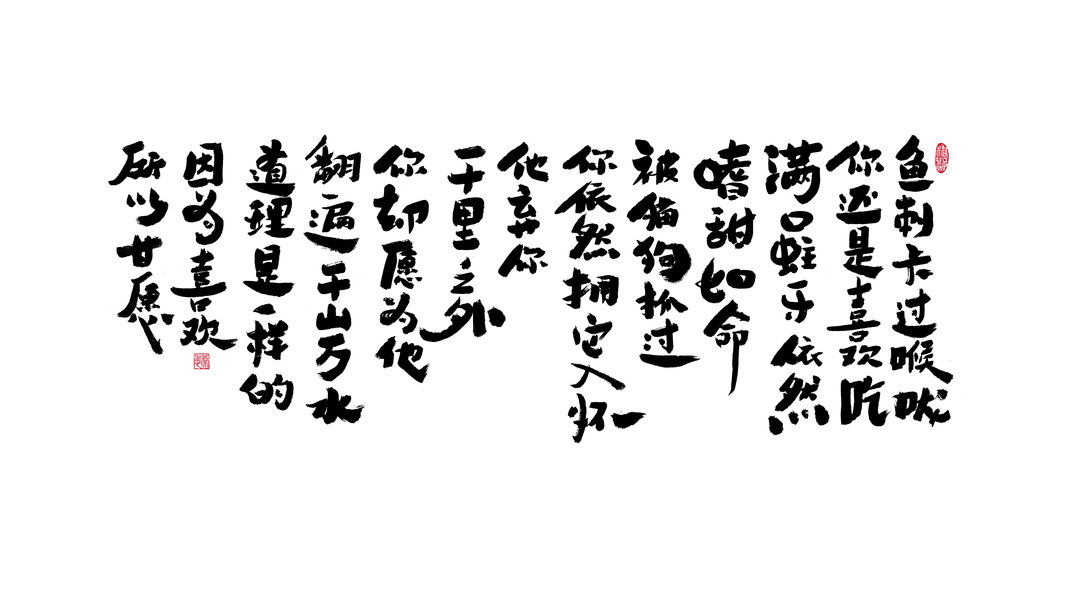 鱼刺卡过喉咙
你还是喜欢吃
满口蛀牙依然
嗜甜如命
被猫狗抓过
你依然拥它入怀
他弃你
千里之外
你却愿为他
翻遍千山万水
道理是一样的
因为喜欢
所以甘愿